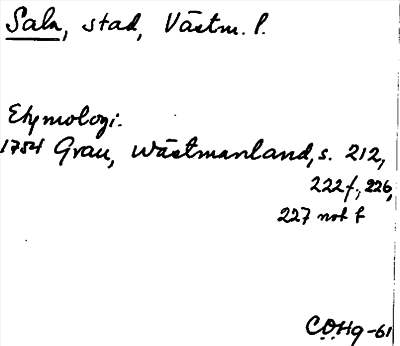 Sala, stad, Västm. l.
Etymologi.
1754 Grau, Wästmanland, s. 212,
222f., 226,
227 not f
COHg -61